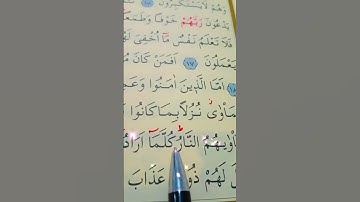 وَهُمْ لَا يَسْتَكْبِرُونَ
يَدْعُونَ رَبَّهُمْ خَوْفًا وَطَمَعًا
فَلَا تَعْلَمُ نَفْسٌ مَٓا اُخْفِيَ لَهُمْ
يَعْمَلُونَ ١٧ اَفَمَنْ كَانَ مُؤ
١٨ اَمَّا الَّذ۪ينَ اٰمَنُوا وَعَمِ
مَأْوٰىۘ نُزُلًا بِمَا كَانُوا
أْوٰيهُمُ النَّارُۜ كُلَّمَٓا اَرَادُ
لَهُمْ ذُو عَذَابَ